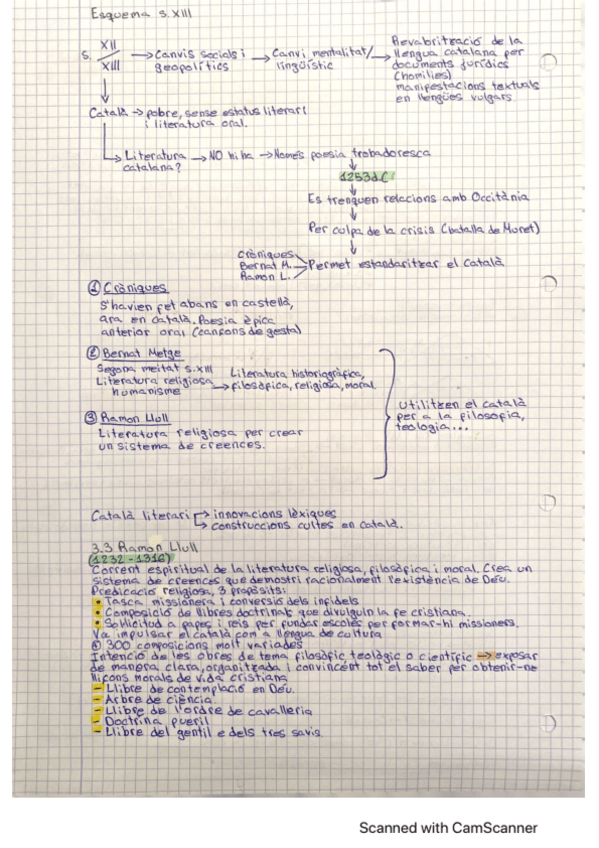 Esquema s.XIII
s. XII/XIII → Canvis socials i geopolítics → Canvi mentalitat/lingüístic → Revabrització de la
llengua catalana per
documents jurídics
(homilies)
manifestacions textuals
en llengües vulgars.
Català → pobre, sense estatus literari
i literatura oral.
Literatura catalana? → NO hi ha → Només poesia trobadoresca
1253d.C
Es trenquen relacions amb Occitània
Per culpa de la crisis (batalla de Muret)
Cròniques
Bernat M. → Permet estandaritzar el català
Ramon L.
① Cròniques
S'havien fet abans en castellà,
ara en català. Poesia èpica
anterior oral (cançons de gesta)
② Bernat Metge
Segona meitat s.XIII
Literatura religiosa
humanisme
→ Literatura historiogràfica,
filosòfica, religiosa, moral
③ Ramon Llull
Literatura religiosa per crear
un sistema de creences.
Utilitzen el català
per a la filosofia,
teologia...
Català literari → innovacions lèxiques
→ construccions cultes en català.
3.3 Ramon Llull
(1232-1316)
Corrent espiritual de la literatura religiosa, filosòfica i moral. Crea un
sistema de creences que demostri racionalment l'existència de Déu.
Predicació religiosa, 3 propòsits:
• Tasca missionera i conversió dels infidels
• Composició de llibres doctrinals que divulguin la fe cristiana.
• Sol·licitud a papes i reis per fundar escoles per formar-hi missioners.
Va impulsar el català com a llengua de cultura
300 composicions molt variades
Intenció de les obres de tema filosòfic, teològic o científic → exposar
de manera clara, organitzada i convincent tot el saber per obtenir-ne
lliçons morals de vida cristiana
- Llibre de contemplació en Déu.
- Arbre de ciència.
- Llibre de l'ordre de cavalleria
- Doctrina pueril
- Llibre del gentil e dels tres savis.
Scanned with CamScanner